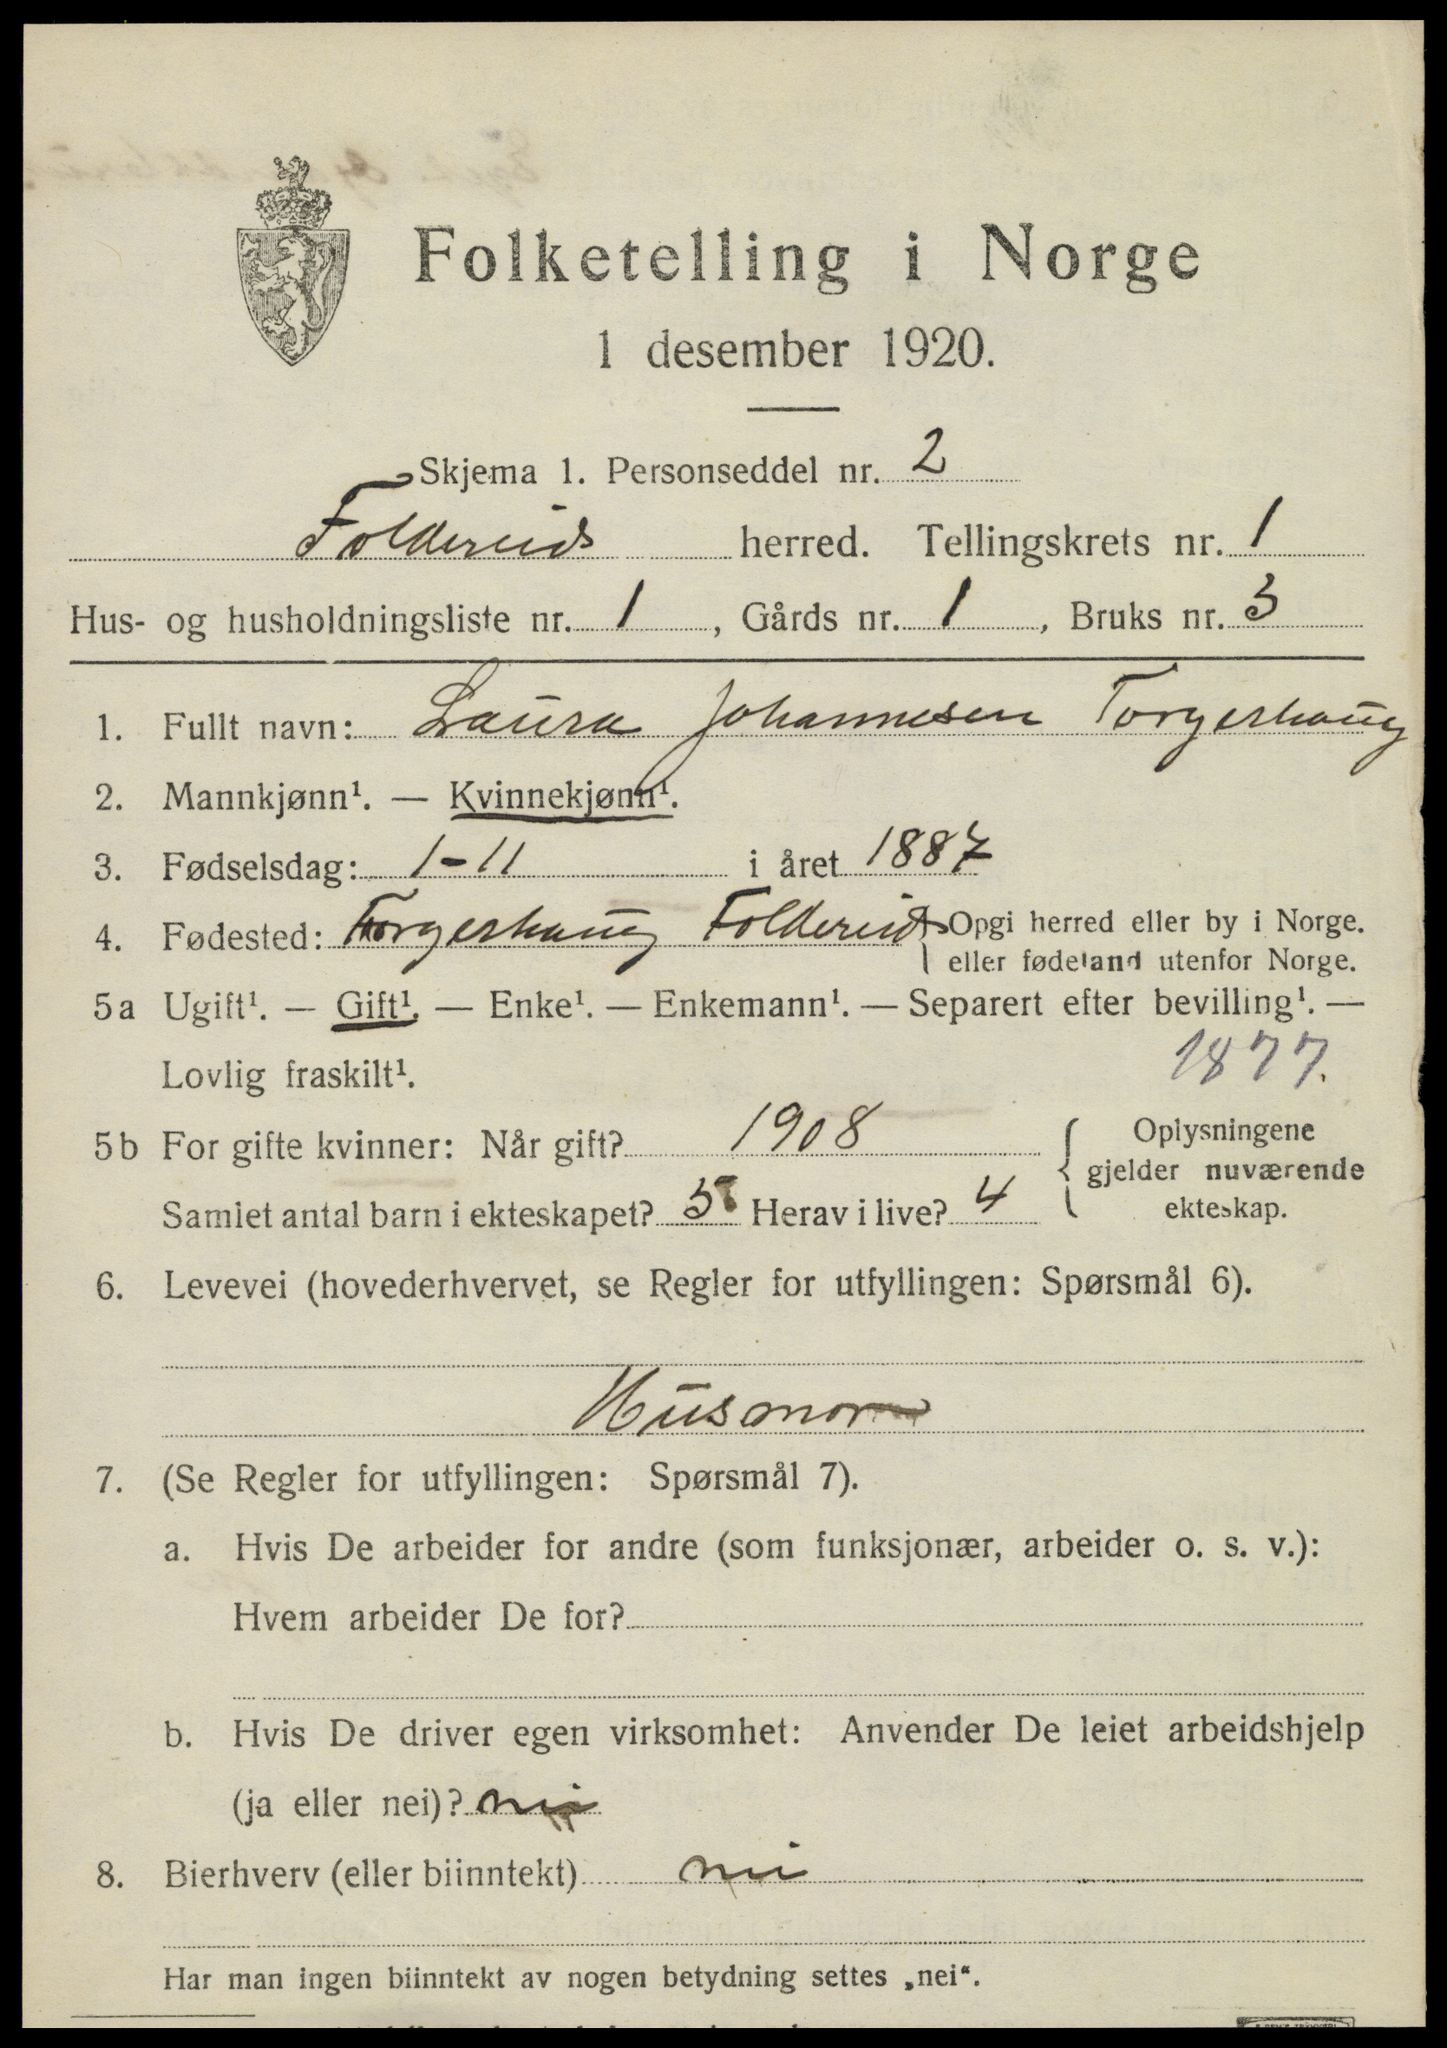 Folketelling i Norge
1 desember 1920.
Skjema 1. Personseddel nr. 2
Foldereids herred. Tellingskrets nr. 1
Hus- og husholdningsliste nr. 1, Gårds nr. 1, Bruks nr. 3
1. Fullt navn: Laura Johannesen Torgershaug
2. Mannkjønn¹. — Kvinnekjønn¹.
3. Fødselsdag: 1-11 i året 1887
4. Fødested: Torgershaug Foldereids Opgi herred eller by i Norge.
eller fødeland utenfor Norge.
5a Ugift¹. — Gift¹. — Enke¹. — Enkemann¹. — Separert efter bevilling¹. —
Lovlig fraskilt¹. 1877.
5b For gifte kvinner: Når gift? 1908
Samlet antal barn i ekteskapet? 5 Herav i live? 4
Oplysningene
gjelder nuværende
ekteskap.
6. Levevei (hovederhvervet, se Regler for utfyllingen: Spørsmål 6).
Husmor
7. (Se Regler for utfyllingen: Spørsmål 7).
a. Hvis De arbeider for andre (som funksjonær, arbeider o. s. v.):
Hvem arbeider De for?
b. Hvis De driver egen virksomhet: Anvender De leiet arbeidshjelp
(ja eller nei)? nei
8. Bierhverv (eller biinntekt) nei
Har man ingen biinntekt av nogen betydning settes „nei“.